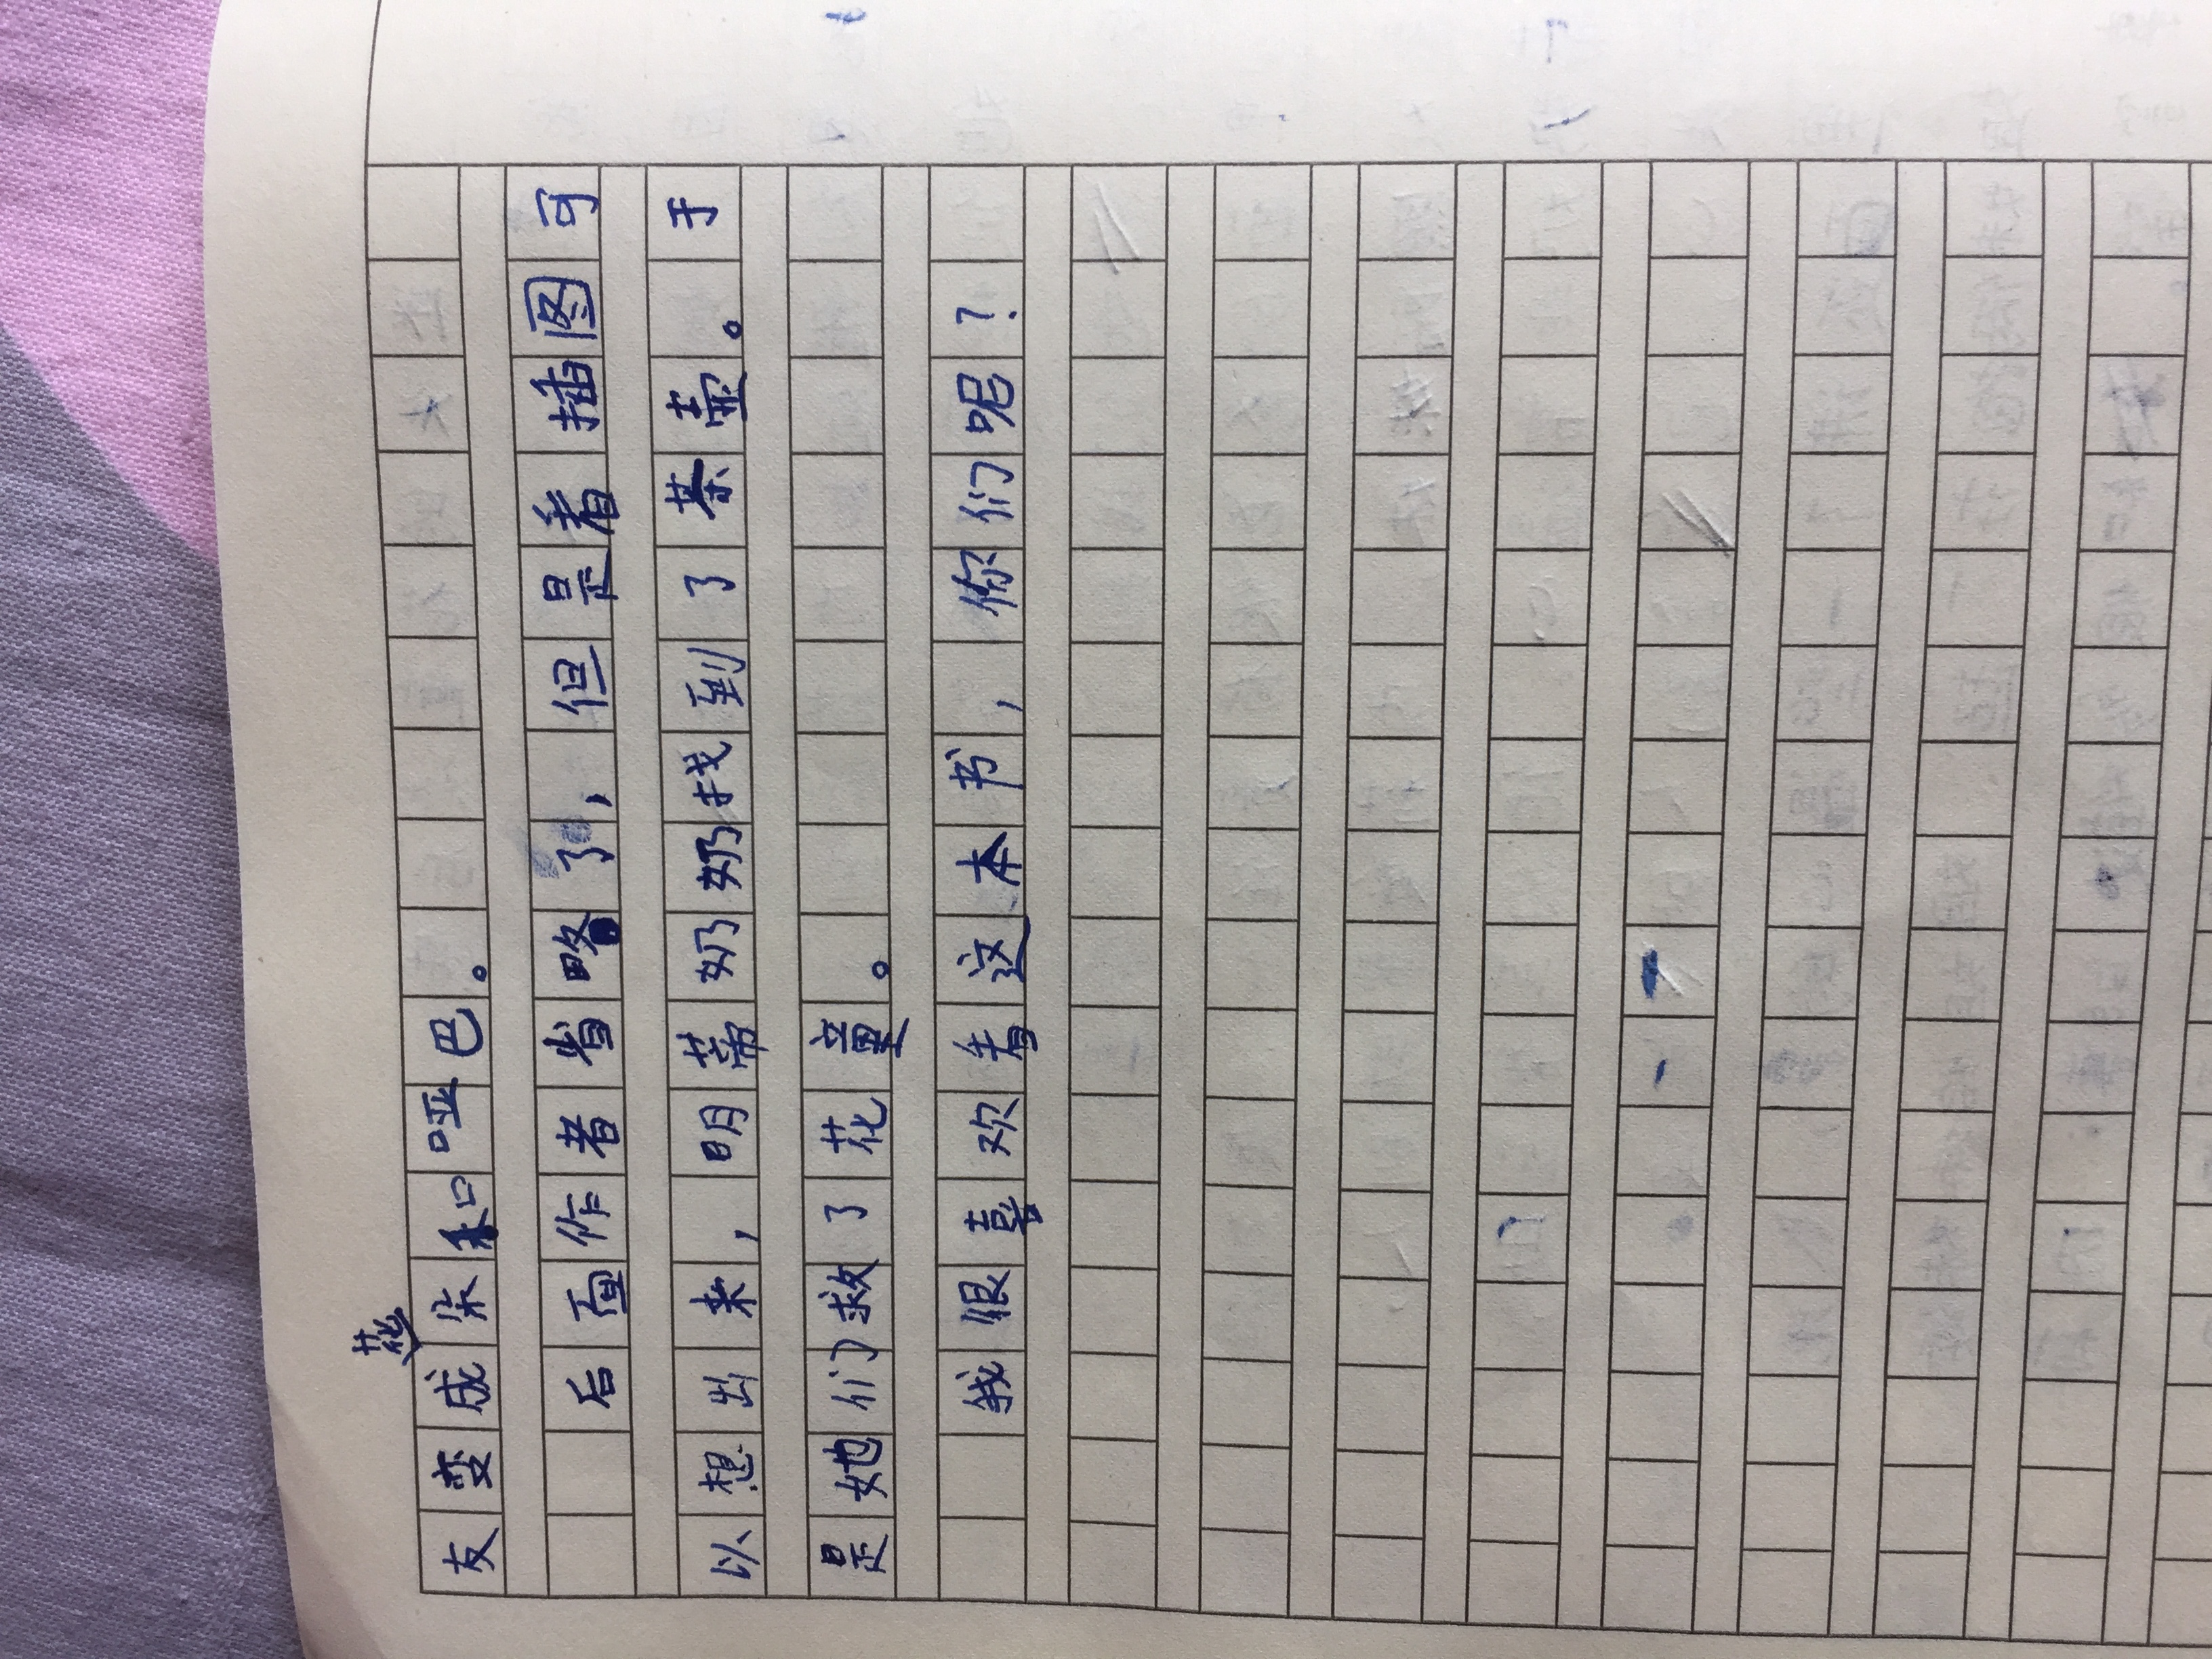 友变成花朵和哑巴。
后面作者省略了，但是看插图可
以想出来，明蒂奶奶找到了茶壶。于
是她们救了花童。
我很喜欢看这本书，你们呢？